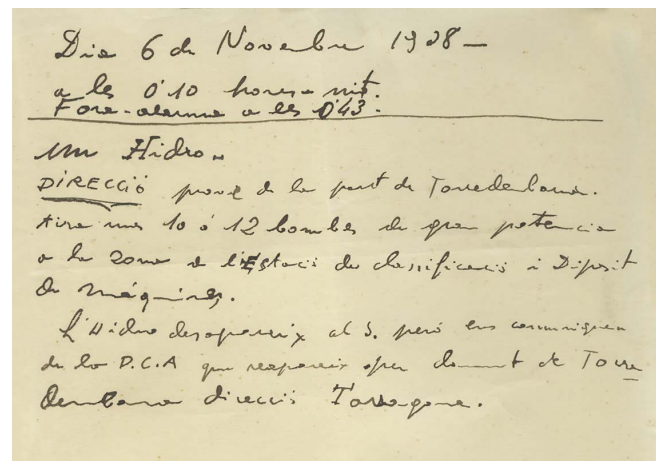 Dia 6 de Novembre 1938 –
a les 0'10 hores – nit.
Fora-alarma a les 0'43.
Un Hidro.
DIRECCIÓ prové de la part de Torredembarra.
tira unes 10 o 12 bombes de gran potencia
a la zona de l'Estació de classificació i Diposit
de màquines.
L'Hidro desapareix al S. però ens comuniquen
de la D.C.A que reapareix per damunt de Torre
dembarra direcció Tarragona.